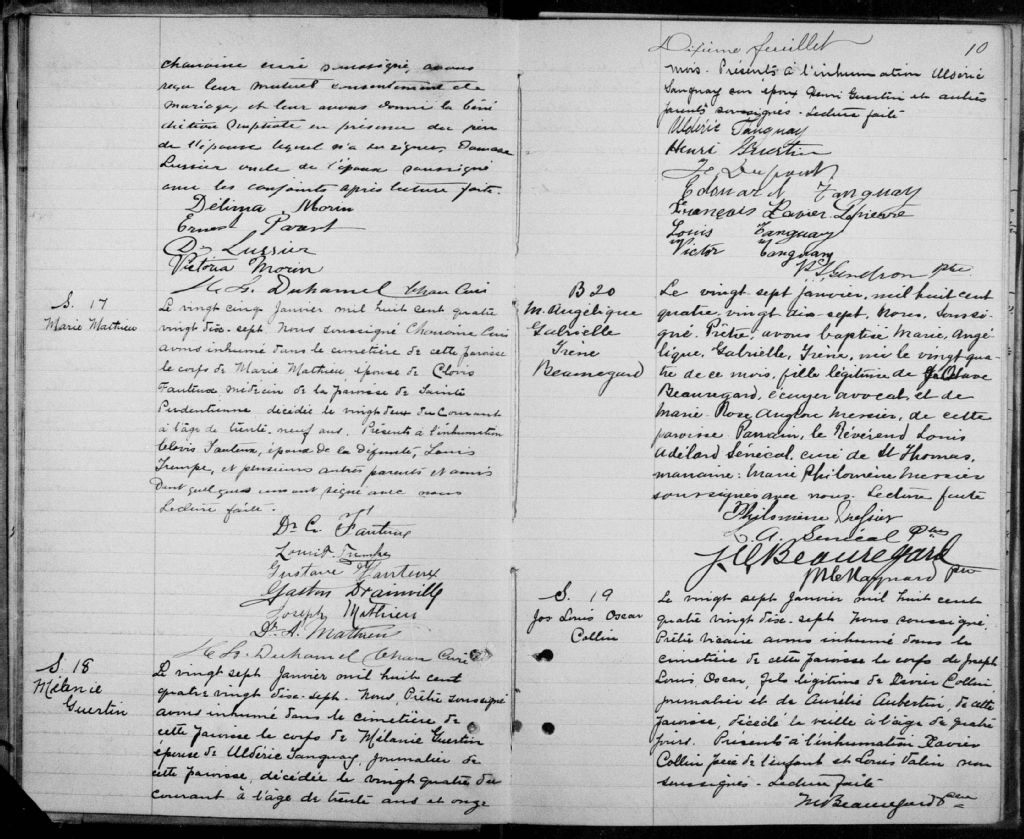 chanoine curé soussigné, avons
reçu leur mutuel consentement de
mariage, et leur avons donné la béné
diction nuptiale en présence du père
de l'épouse lequel n'a su signer, Damase
Lussier oncle de l'époux soussigné
avec les conjoints après lecture faite.
Délima Morin
Ernest Parast
Ds Lussier
Victoria Morin
L. Duhamel Chan Curé
S. 17
Marie Mathieu
Le vingt cinq Janvier mil huit cent quatre
vingt dix-sept Nous soussigné Chanoine Curé
avons inhumé dans le cimetière de cette paroisse
le corps de Marie Mathieu épouse de Clovis
Fauteux médecin de la paroisse de Sainte
Pudentienne décédée le vingt deux du courant
à l'âge de trente-neuf ans. Présents à l'inhumation
Clovis Fauteux, époux de la défunte, Louis
Trempe, et plusieurs autres parents et amis
Dont quelques uns ont signé avec nous
Lecture faite.
Dr C. Fauteux
Louis Trempe
Gustave Fauteux
Gaston Drainville
Joseph Mathieu
Dr A. Mathieu
L. Duhamel Chan Curé
S. 18
Mélanie
Guertin
Le vingt sept Janvier mil huit cent
quatre vingt dix-sept. Nous, Prêtre soussigné
avons inhumé dans le cimetière de
cette paroisse le corps de Mélanie Guertin
épouse de Uldéric Tanguay, journalier de
cette paroisse, décédée le vingt quatre du
courant à l'âge de trente ans et onze
Dixième feuillet
10
mois. Présents à l'inhumation Uldéric
Tanguay son époux Henri Guertin et autres
parents soussignés. Lecture faite
Uldéric Tanguay
Henri Guertin
Dupont
Edouard Tanguay
François Xavier Lapierre
Louis Tanguay
Victor Tanguay
Gendron ptre
B 20
M. Angélique
Gabrielle
Irène
Beauregard
Le vingt sept janvier, mil huit cent
quatre vingt dix-sept, Nous, soussi-
gné Prêtre, avons baptisé Marie, Angé-
lique, Gabrielle, Irène, née le vingt qua-
tre de ce mois, fille légitime de Octave
Beauregard, écuyer avocat, et de
Marie Rose Messier, de cette
paroisse. Parrain, le Révérend Louis
Adélard Sénécal, curé de St Thomas,
marraine: Marie Philomène Messier
soussignés avec nous. Lecture faite
Philomène Messier
L. A. Senécal Ptre
J. O. Beauregard
Maynard ptre
S. 19
Jos Louis Oscar
Collin
Le vingt sept Janvier mil huit cent
quatre vingt dix-sept Nous soussigné,
Prêtre vicaire avons inhumé dans le
cimetière de cette paroisse le corps de Joseph
Louis Oscar, fils légitime de Collin,
journalier et de Aurélie Aubertin, de cette
paroisse, décédé la veille à l'âge de quatre
jours. Présents à l'inhumation Xavier
Collin père de l'enfant et Louis Valin non
soussignés. Lecture faite
Beauregard ptre